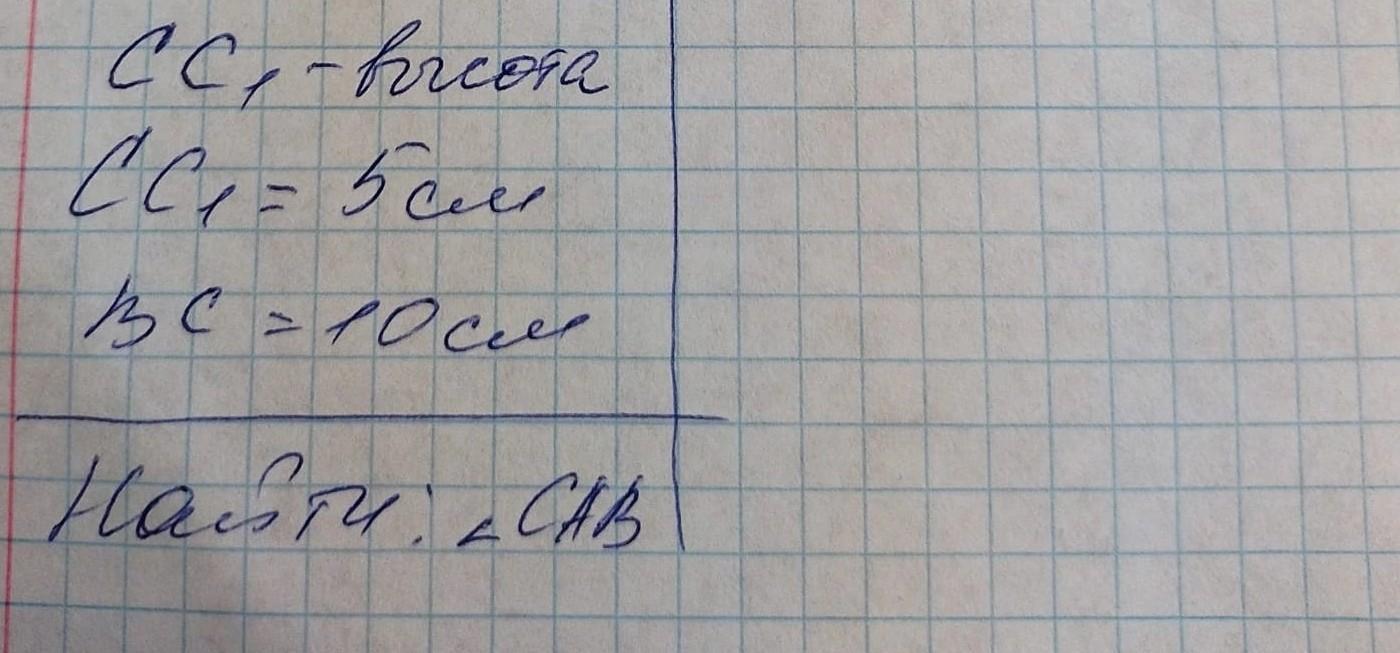 CC₁ - высота
CC₁ = 5 см
BC = 10 см
Найти: ∠CAB